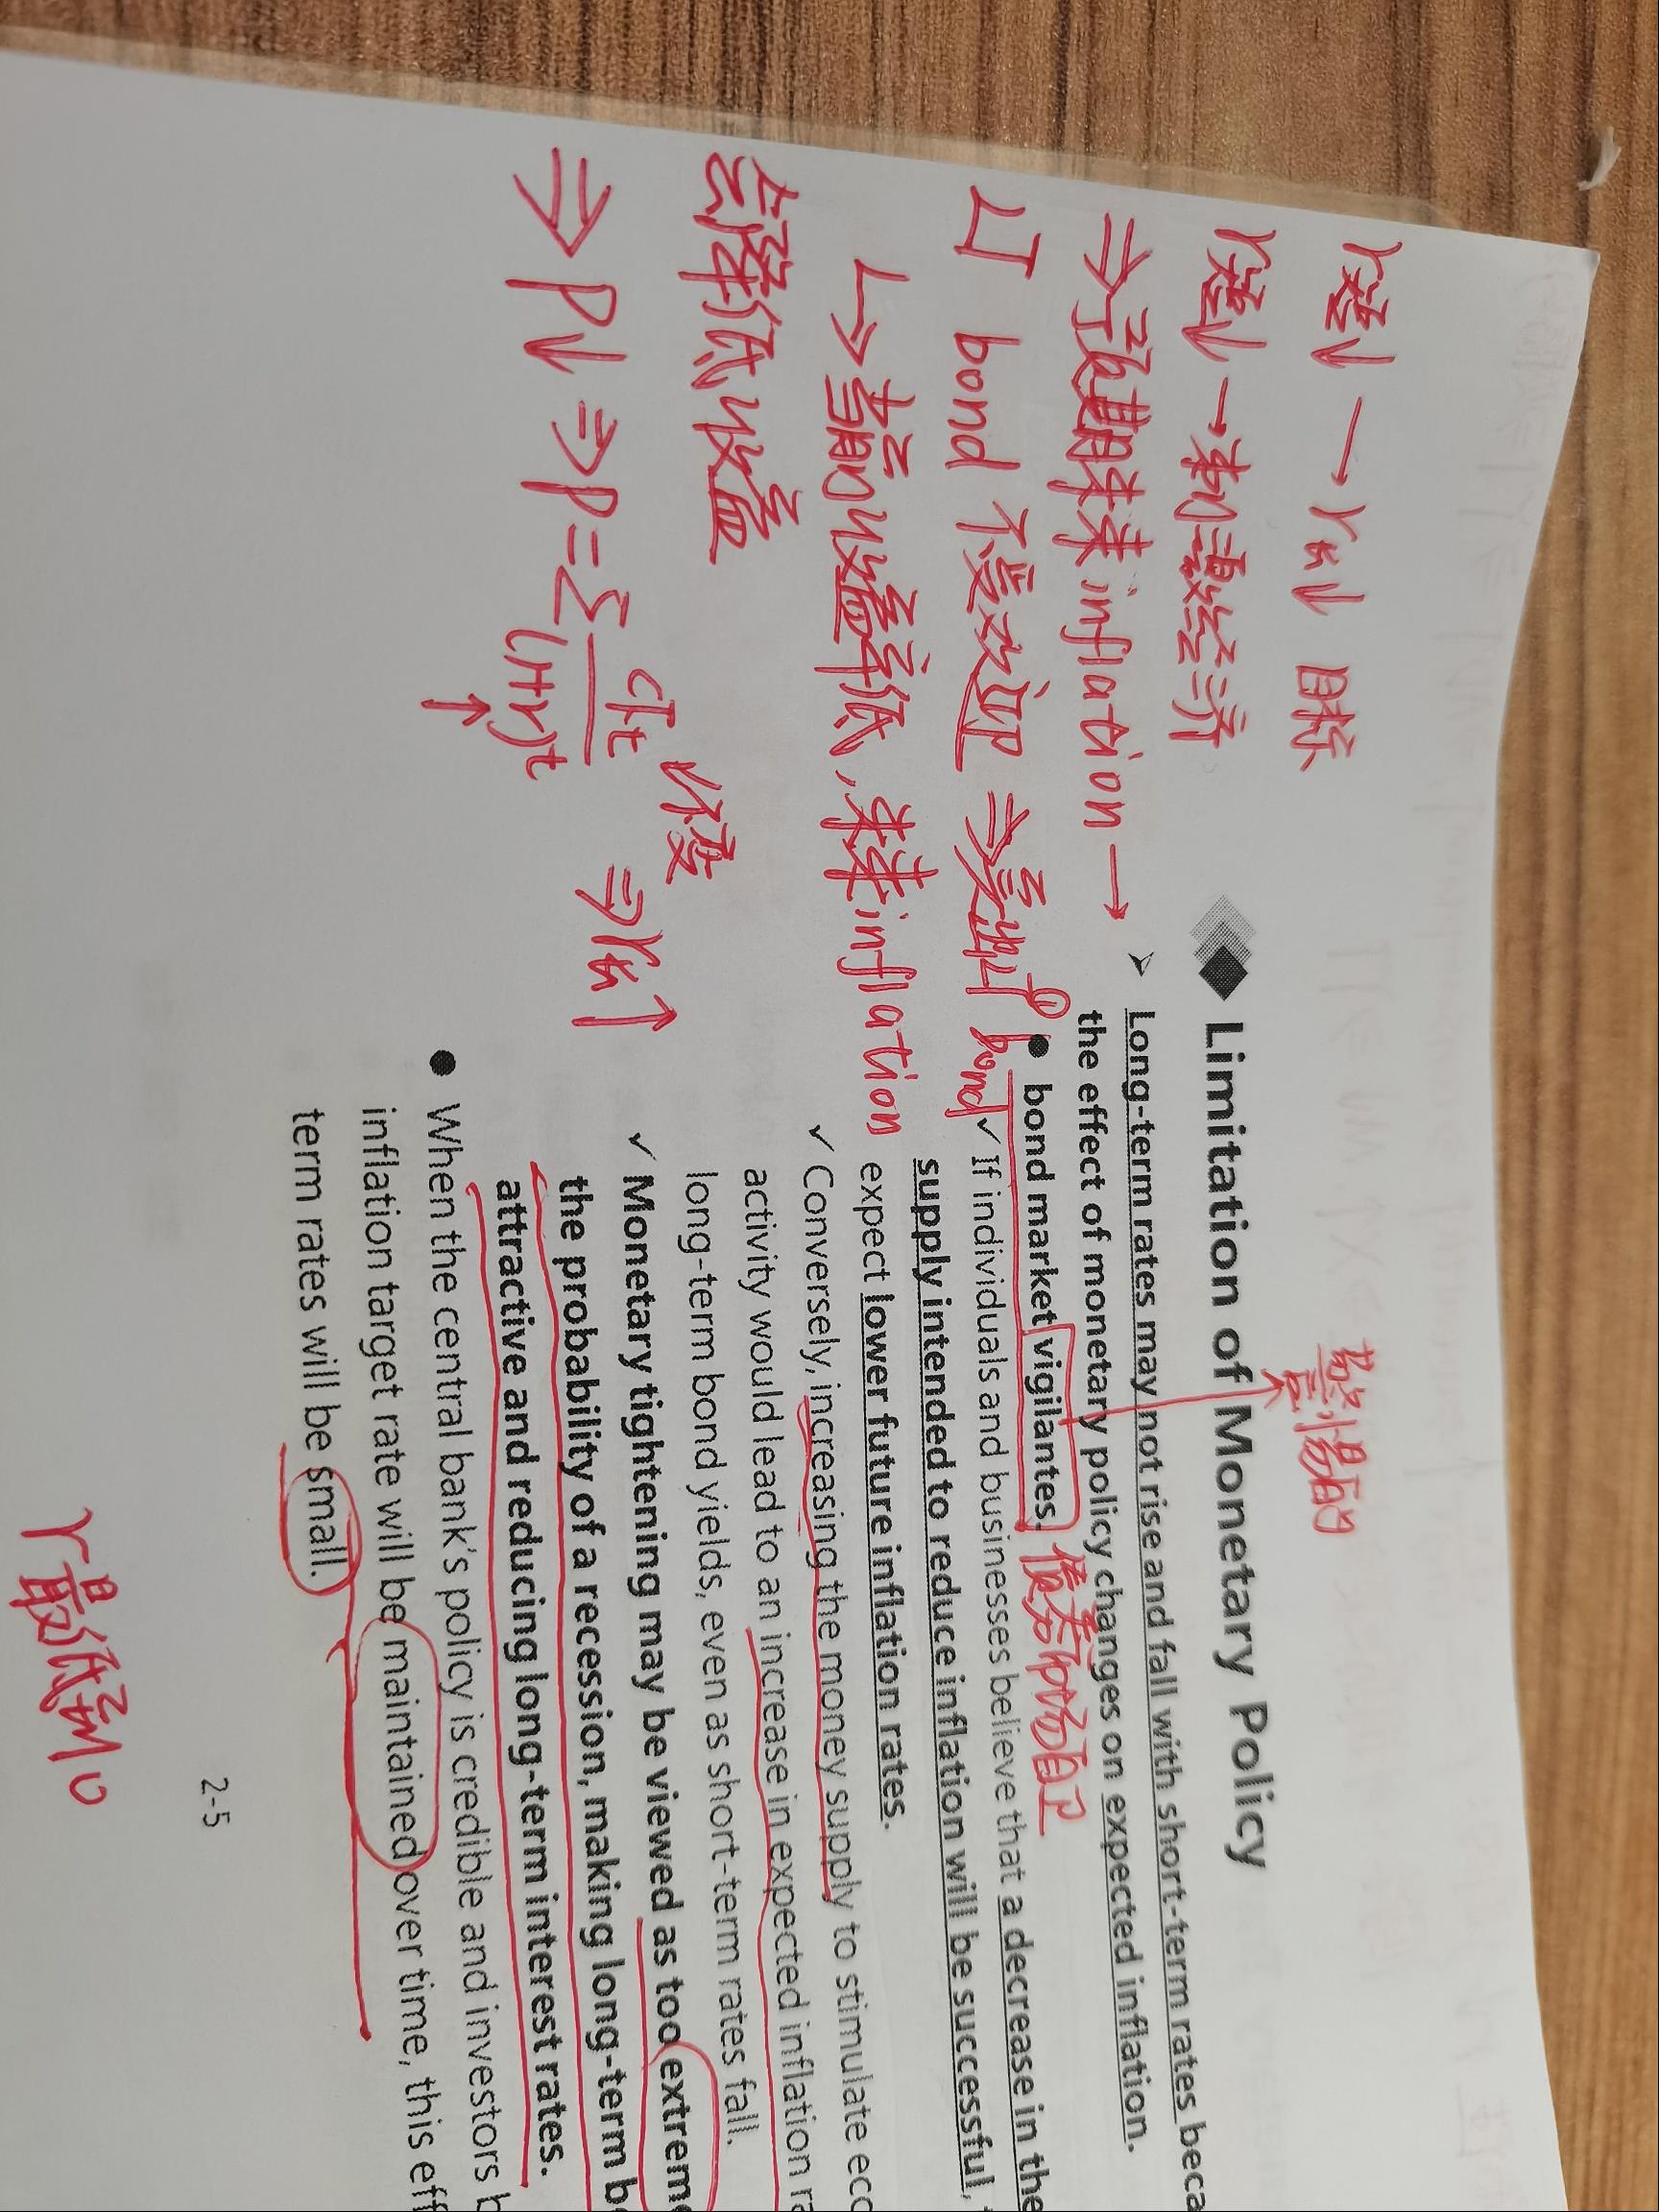 r短↓ → r长↓ 目标
r短↓ → 刺激经济
⇒ 预期未来 inflation →
LT bond 不受欢迎 ⇒ 卖出 bond
↳ 当前收益率低，未来 inflation
会降低收益
⇒ P↓ ⇒ P = Σ CFt / (1+r)^t ⇒ r长↑
↙不变
↑
警惕的
Limitation of Monetary Policy
➢ Long-term rates may not rise and fall with short-term rates beca
the effect of monetary policy changes on expected inflation.
● bond market vigilantes. 债券市场
✓ If individuals and businesses believe that a decrease in the
supply intended to reduce inflation will be successful,
expect lower future inflation rates.
✓ Conversely, increasing the money supply to stimulate eco
activity would lead to an increase in expected inflation ra
long-term bond yields, even as short-term rates fall.
✓ Monetary tightening may be viewed as too extreme
the probability of a recession, making long-term b
attractive and reducing long-term interest rates.
● When the central bank's policy is credible and investors b
inflation target rate will be maintained over time, this eff
term rates will be small.
2-5
r最低到0